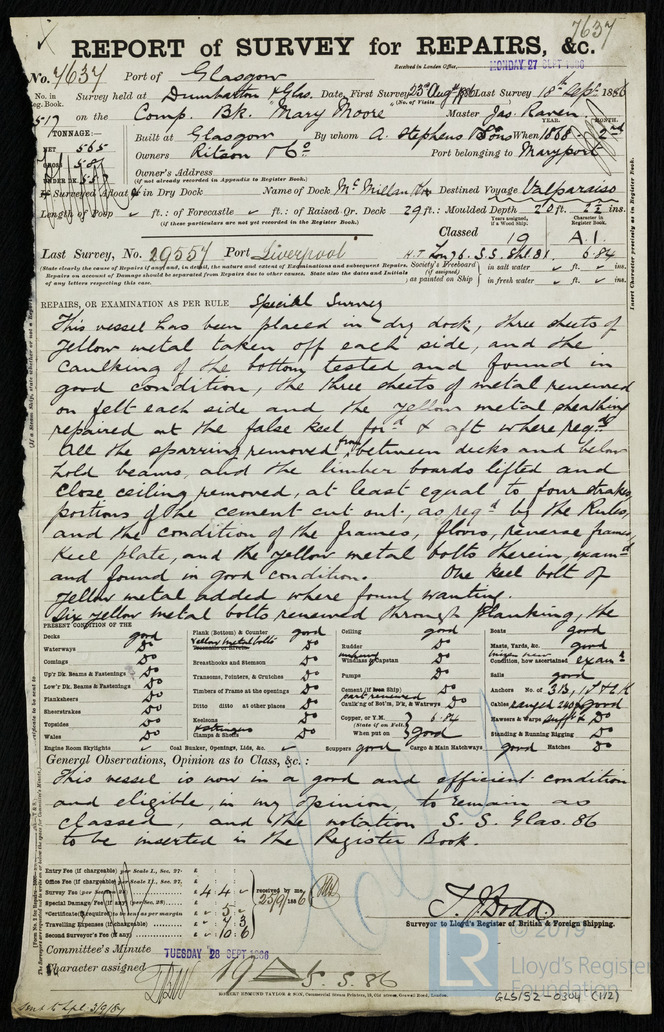 7637
REPORT of SURVEY for REPAIRS, &c.
Received in London Office, MONDAY 27 SEPT 1886
No. 7637 Port of Glasgow
No. in Reg. Book. Survey held at Dumbarton & Glas. Date, First Survey 25th Aug 1886 Last Survey 18th Sept. 1886
(No. of Visits
517 on the Comp. Bk. "Mary Moore" Master Jas. Raven
TONNAGE:— YEAR. MONTH.
NET 565 Built at Glasgow By whom A. Stephens & Sons When 1868 - 2nd
GROSS 587 Owners Ritson & Co Port belonging to Maryport
UNDER DK. 587 Owner's Address
(if not already recorded in Appendix to Register Book.)
If Surveyed Afloat or in Dry Dock Name of Dock McMillan Destined Voyage Valparaiso
Length of Poop ft.: of Forecastle ft.: of Raised Qr. Deck 29 ft.: Moulded Depth ft. ins.
(if these particulars are not yet recorded in the Register Book).
Years assigned, if a Wood Ship. Character in Register Book.
Classed 19 A.1.
Last Survey, No. 29557 Port Liverpool S.S. 6.84
(State clearly the cause of Repairs if any, and, in detail, the nature and extent of Examinations and subsequent Repairs.
Repairs on account of Damage should be separated from Repairs due to other causes. State also the dates and initials
of any letters respecting this case.
Society's Freeboard (if assigned) as painted on Ship in salt water ft. ins.
in fresh water ft. ins.
REPAIRS, OR EXAMINATION AS PER RULE Special Survey
This vessel has been placed in dry dock, three sheets of
Yellow metal taken off each side, and the
caulking of the bottom tested and found in
good condition, the three sheets of metal renewed
on felt each side and the yellow metal sheathing
repaired at the false keel ford & aft where reqd.
All the sparring removed from between decks and below
hold beams, and the limber boards lifted and
close ceiling removed, at least equal to four strakes,
portions of the cement cut out, as reqd by the Rules,
and the condition of the frames, floors, reverse frames,
Keel plate, and the yellow metal bolts therein, examd
and found in good condition. One keel bolt of
yellow metal added where found wanting.
Six yellow metal bolts renewed through planking, the
PRESENT CONDITION OF THE
Decks good
Waterways Do
Comings Do
Up'r Dk. Beams & Fastenings Do
Low'r Dk. Beams & Fastenings Do
Planksheers Do
Sheerstrakes Do
Topsides Do
Wales Do
Engine Room Skylights
Plank (Bottom) & Counter good
Yellow metal bolts Do
Breasthooks and Stemson Do
Transoms, Pointers, & Crutches Do
Timbers of Frame at the openings Do
Ditto ditto at other places Do
Keelsons Do
& Stringers Do
Clamps & Shelfs
Coal Bunker, Openings, Lids, &c.
Ceiling good
Rudder Do
Windlass & Capstan Do
Pumps Do
Cement (if Iron Ship) Do
part renewed
Caulk'ng of Bot'm, D'k, & Watrways Do
Copper, or Y.M. 6.84
(State if on Felt)
When put on good
Scuppers good Cargo & Main Hatchways good Hatches Do
Boats good
Masts, Yards, &c. good
Condition, how ascertained examd
Sails good
Anchors No. of 3B, 1S & 2K
Cables good
Hawsers & Warps sufft & Do
Standing & Running Rigging Do
General Observations, Opinion as to Class, &c.:
This vessel is now in a good and efficient condition
and eligible, in my opinion, to remain as
classed, and the notation S.S. Glas. 86
to be inserted in the Register Book.
Entry Fee (if chargeable) per Scale I., Sec. 27-
Office Fee (if chargeable) per Scale II., Sec. 27,
Survey Fee (per Section 28) 4 4
Special Damage Fee (if any) (per Sec. 28)
*Certificate (if required) to be sent as per margin 5
Travelling Expenses (if chargeable) 4 3
Second Surveyor's Fee (if any) 10 6
received by me, 25/9/1886
T. J. Dodd
Surveyor to Lloyd's Register of British & Foreign Shipping.
Committee's Minute TUESDAY 28 SEPT 1886
Character assigned 19 S.S. 86
ROBERT EDMUND TAYLOR & SON, Commercial Steam Printers, 19, Old Street, Goswell Road, London.
© 2019
LR
Lloyd's Register
Foundation
GLS152-0304 (1/2)